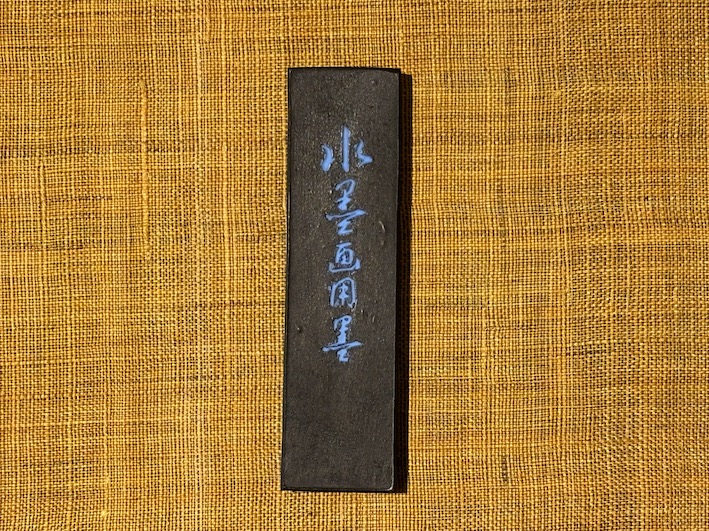 水墨画用墨